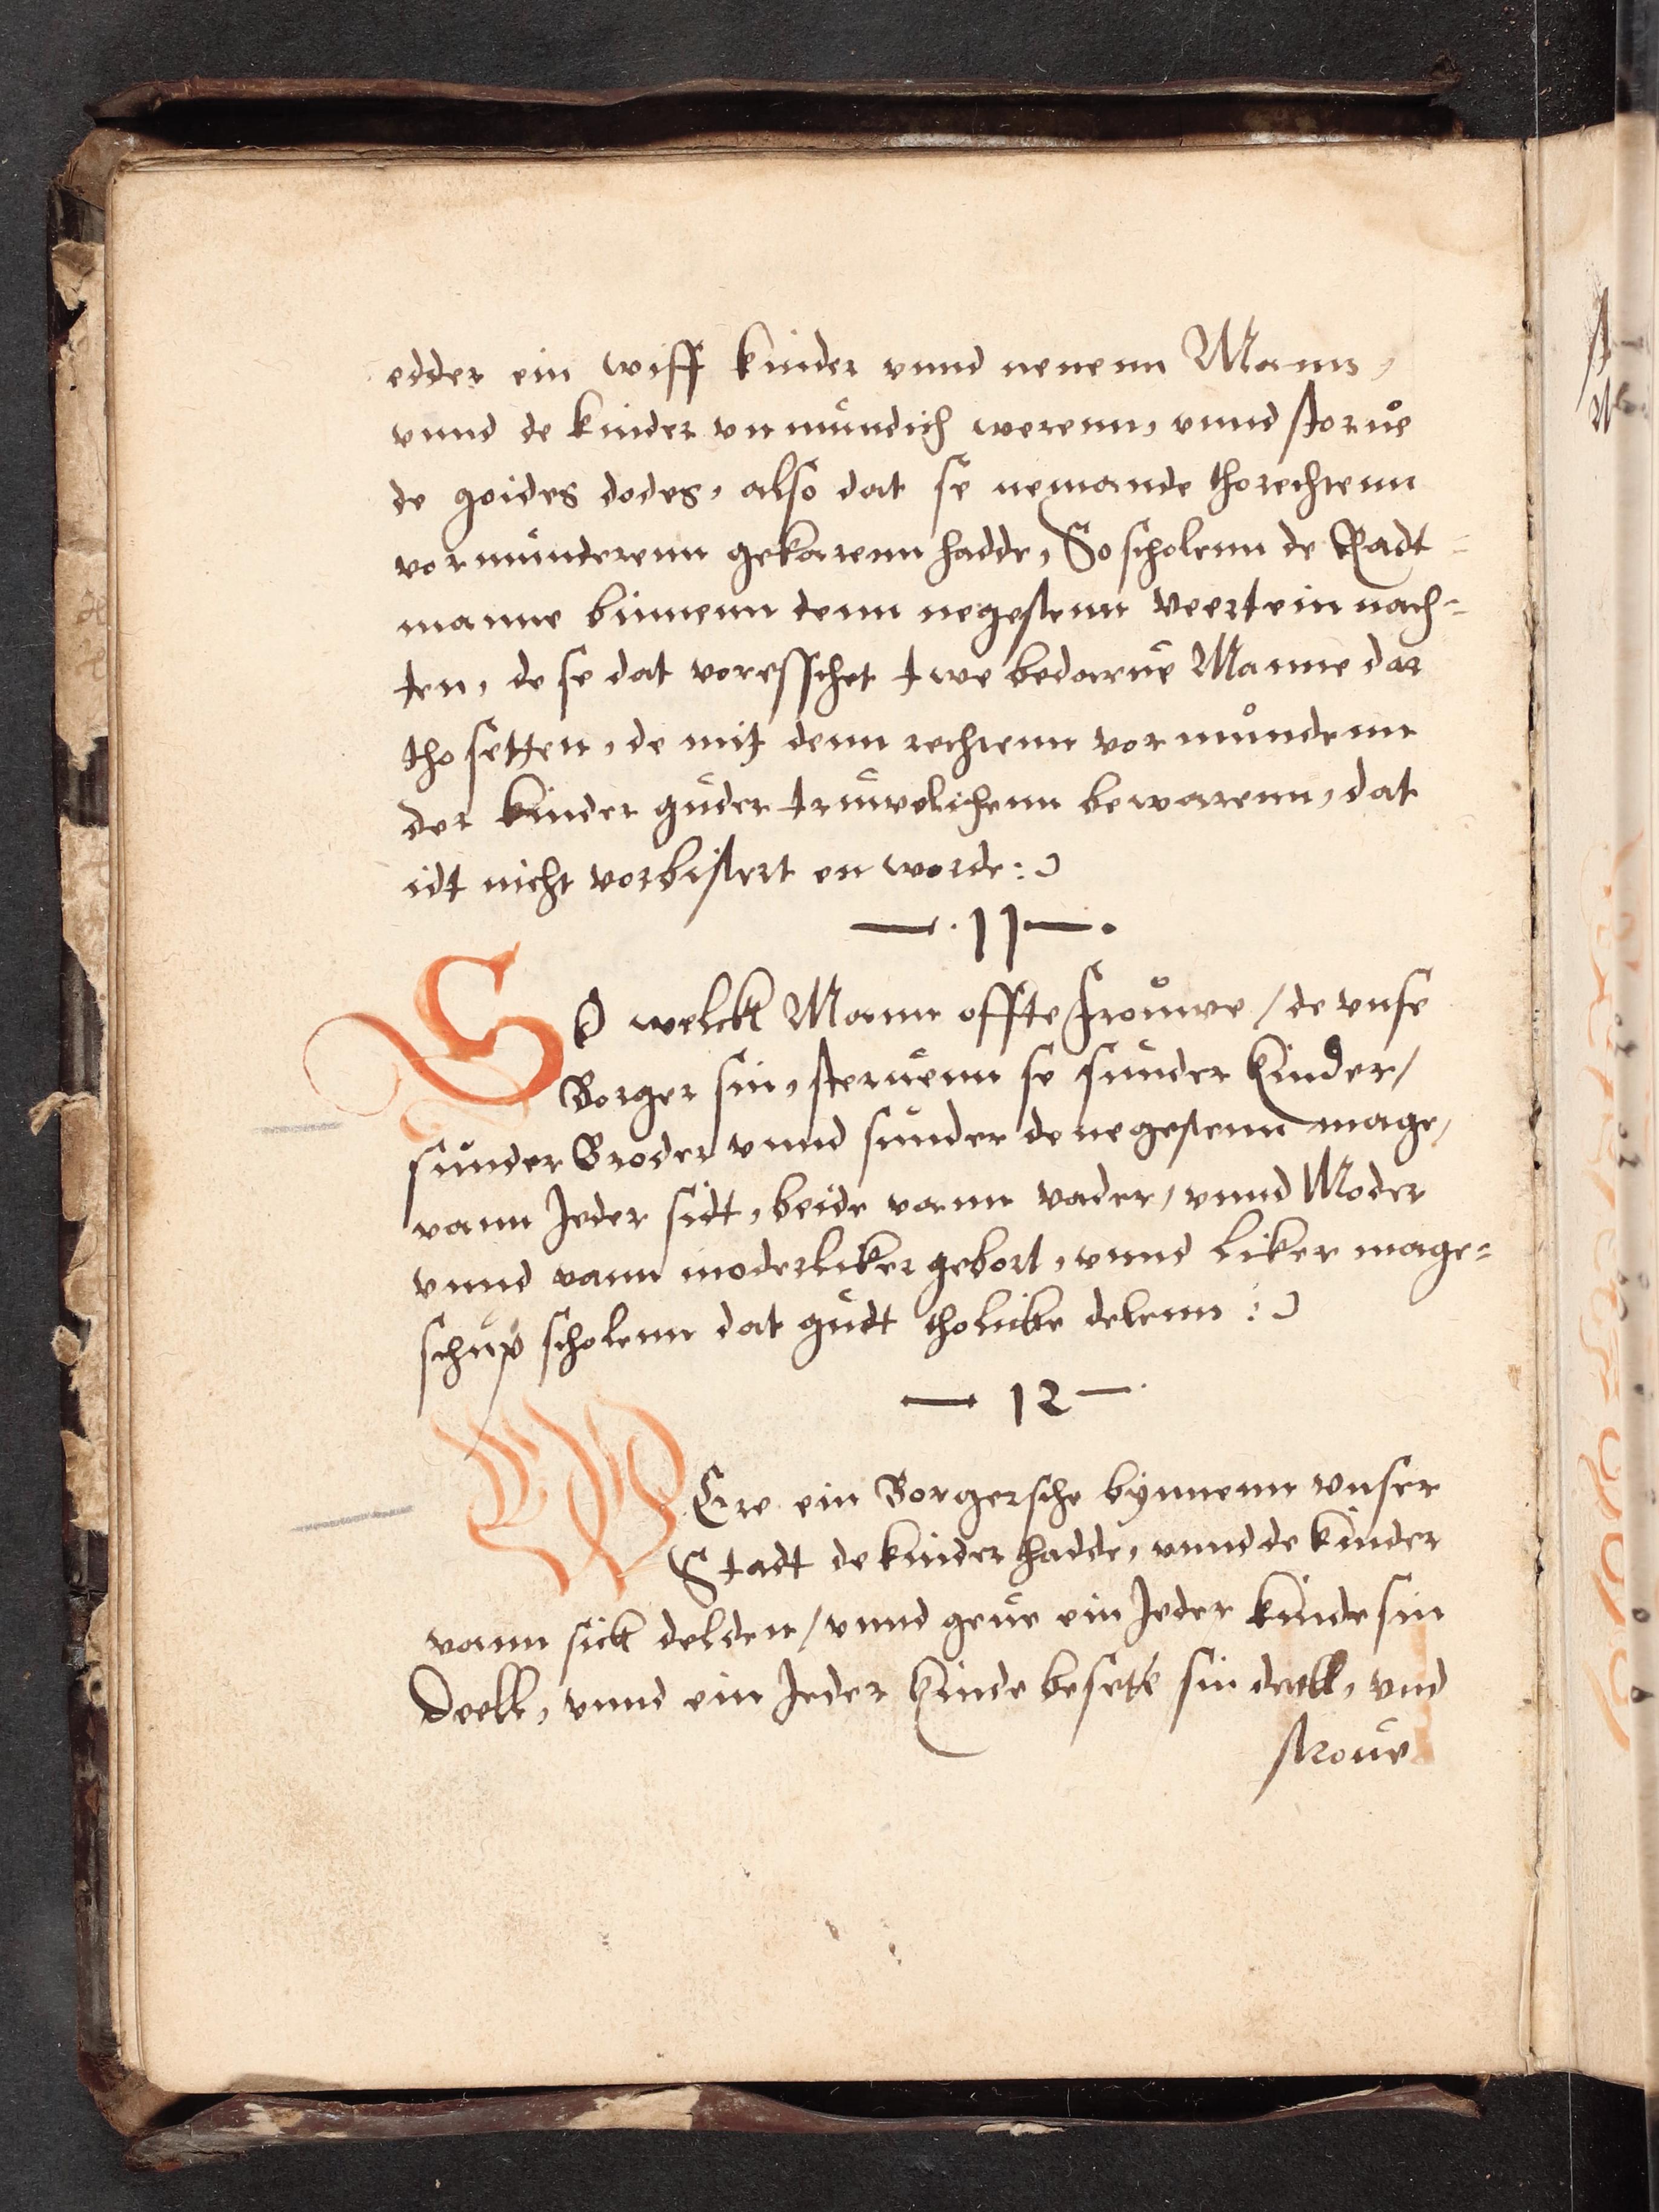 edder ein wiff kinder vnnd nenenn Mann,
vnnd de kinder vnmundich werenn, vnnd storue
de goides dodes, also dat se nemande tho rechtenn
vormunderenn gekarenn hadde, So scholenn de Radt=
manne binnenn denn negestenn veertein nach=
ten, de se dat voresschet twe bedarue Manne dar
tho setten, de mit denn rechtenn vormundenn
der kinder guder truwelichenn bewarenn, dat
idt nicht vorbistert en worde :
— . 11 — .
SO welck Mann offte frouwe / de vnse
Borger sin, steruenn se sunder Kinder /
sunder Broder vnnd sunder de negestenn mage,
vann Jeder sidt, beide vann vader / vnnd Moder
vnnd vann moderliker gebort, vnnd liker mage=
schup scholenn dat gudt tho licke delenn :
— 12 —
WEre ein Borgersche bynnenn vnser
Stadt de kinder hadde, vnnd de kinder
vann sick delden / vnnd geue ein Jeder kinde sin
Deell, vnnd ein Jeder Kinde besete sin deell, vnd
storue